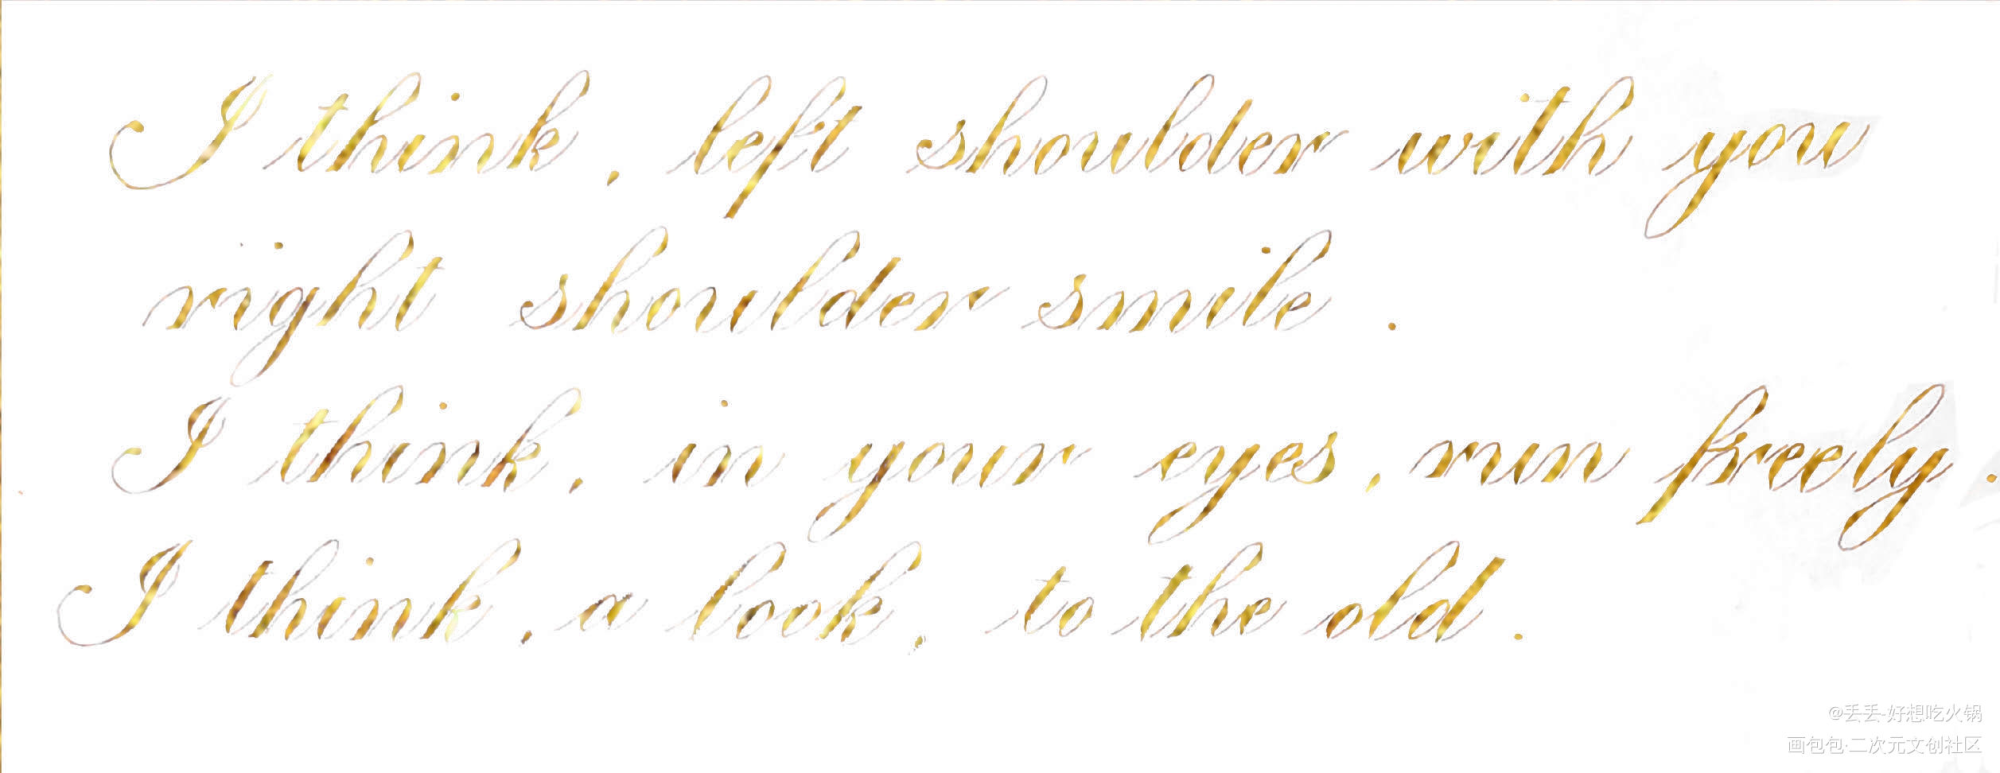 I think, left shoulder with you
right shoulder smile.
I think, in your eyes, run freely.
I think, a look, to the old.
@丢丢-好想吃火锅
画包包·二次元文创社区